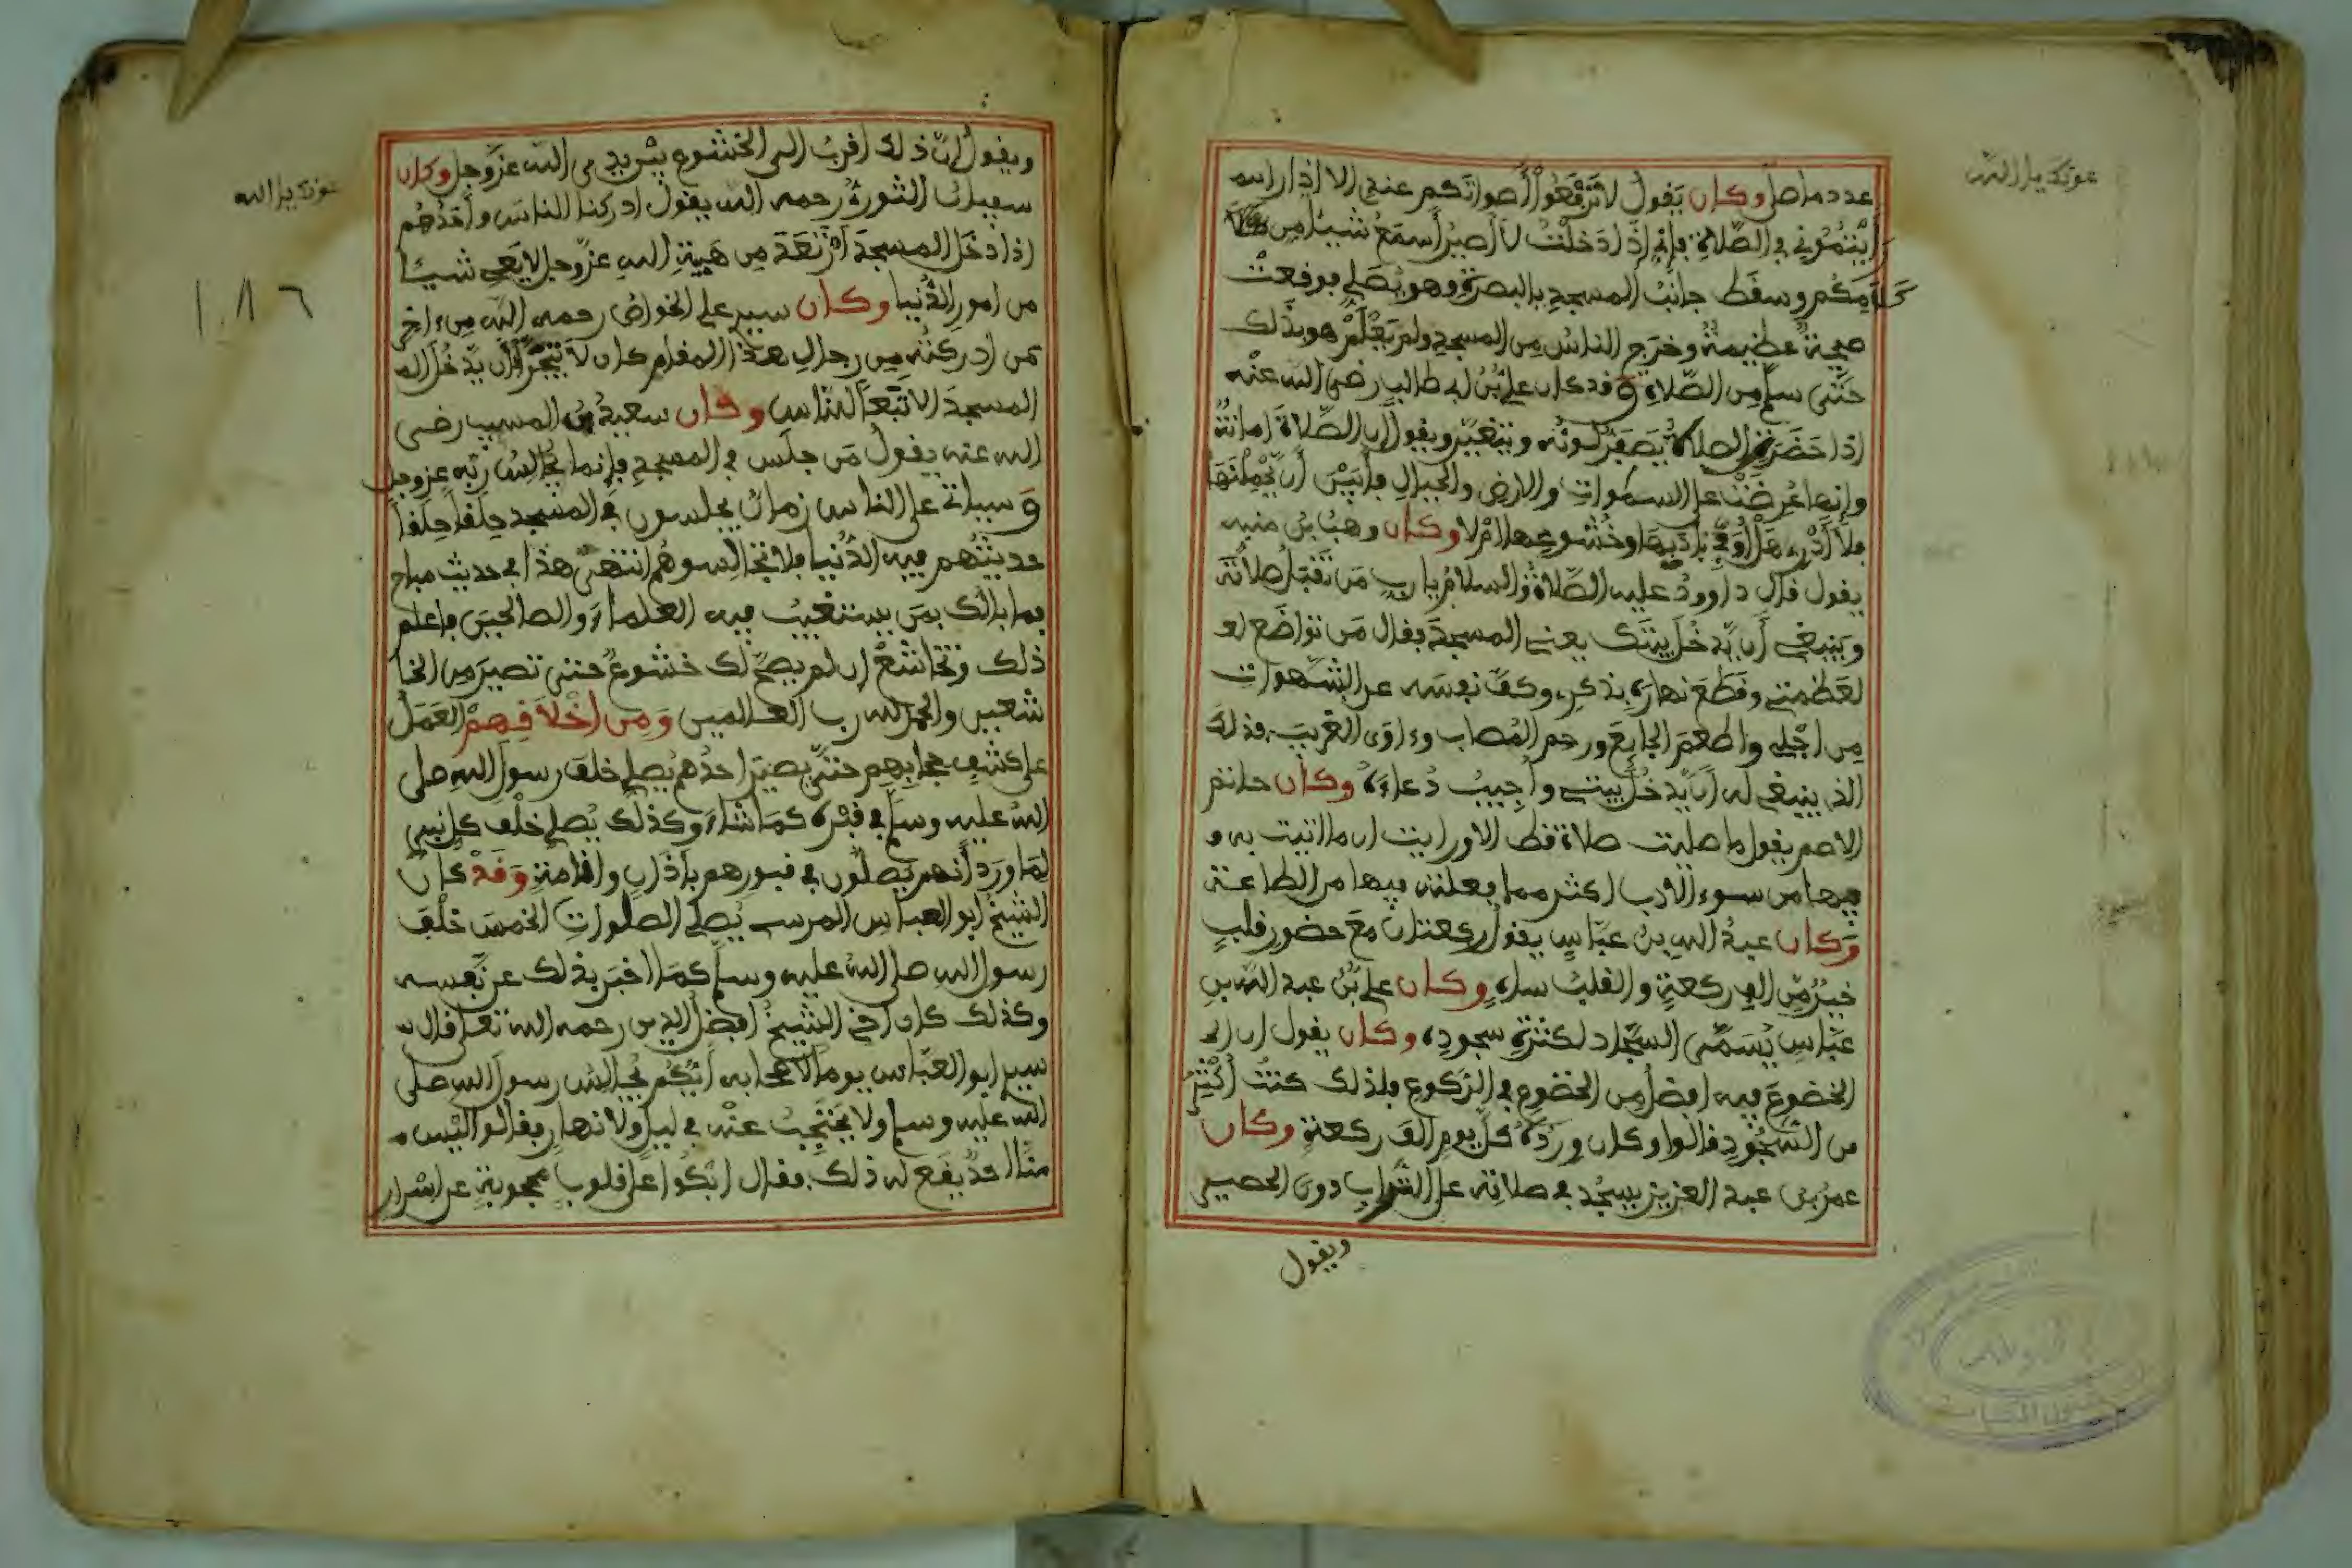 عونك يا الله
عدد ما صلى وكان يقول لا ترفعوا أصواتكم عندي الا إذا
رأيتموني في الصلاة فإني إذا دخلت لا أصير أسمع شيئا من
كلامكم وسقط جانب المسجد بالبصرة وهو يصلي فوقعت
صيحة عظيمة وخرج الناس من المسجد ولم يعلم هو بذلك
حتى سلم من الصلاة وقد كان علي بن ابي طالب رضي الله عنه
إذا حضرت الصلاة يصفر لونه ويتغير ويقول إن الصلاة امانة
وإنها عرضت على السموات والارض والجبال فأبين أن يحملنها
فلا أدري هل أوفي بأدبها وخشوعها ام لا وكان وهب بن منبه
يقول قال داوود عليه الصلاة والسلام يا رب من تقبل صلاته
وينبغي أن يدخل بيتك يعني المسجد فقال من تواضع
لعظمتي وقطع نهاره بذكري وكف نفسه عن الشهوات
من اجلي واطعم الجايع ورحم المصاب وءاوى الغريب فذلك
الذي ينبغي له أن يدخل بيتي وأجيب دعاءه وكان حاتم
الاصم يقول ما صليت صلاة قط الا ورايت ان ما اتيت به
فيها من سوء الأدب اكثر مما فعلته فيها من الطاعة
وكان عبد الله بن عباس يقول ركعتان مع حضور قلب
خير من الف ركعة والقلب ساه وكان علي بن عبد الله بن
عباس يسمى السجاد لكثرة سجوده وكان يقول ان
الخضوع فيه افضل من الخضوع في الركوع فلذلك كنت أكثر
من السجود قالوا وكان ورده كل يوم الف ركعة وكان
عمر بن عبد العزيز يسجد في صلاته على التراب دون الحصير
ويقول
عونك يا الله
١٨٦
ويقول إن ذلك اقرب الى الخشوع بين يدي الله عز وجل وكان
سفيان الثوري رحمه الله يقول ادركنا الناس وأحدهم
إذا دخل المسجد ارتعد من هيبة الله عز وجل لا يعي شيئا
من امور الدنيا وكان سيدي علي الخواص رحمه الله من ءاخر
من ادركته من رجال هذا المقام كان لا يتجرأ أن يدخل الى
المسجد الا تبعا للناس وكان سعيد بن المسيب رضي
الله عنه يقول من جلس في المسجد فإنما يجالس ربه عز وجل
وسياتي على الناس زمان يجلسون في المسجد حلقا حلقا
حديثهم فيه الدنيا فلا تجالسوهم انتهى هذا في حديث مباح
فما بالك بمن يستغيب فيه العلماء والصالحين فاعلم
ذلك وتخاشع إن لم يصح لك خشوع حتى تصير من الخا
شعين والحمد لله رب العالمين ومن اخلاقهم العمل
على كشف حجابهم حتى يصير احدهم يصلي خلف رسول الله صلى
الله عليه وسلم في قبره كما شاء وكذلك يصلي خلف كل نبي
لما ورد أنهم يصلون في قبورهم بأذان وإقامة وقد كان
الشيخ ابو العباس المرسي يصلي الصلوات الخمس خلف
رسول الله صلى الله عليه وسلم كما اخبر بذلك عن نفسه
وكذلك كان اخي الشيخ افضل الدين رحمه الله تعالى قال
سيدي ابو العباس يوما لاصحابه أيكم يجالس رسول الله صلى
الله عليه وسلم ولا يحتجب عنه في ليل ولا نهار فقالوا ليس
منا احد يقع له ذلك فقال ابكوا على قلوب محجوبة عن اسرار